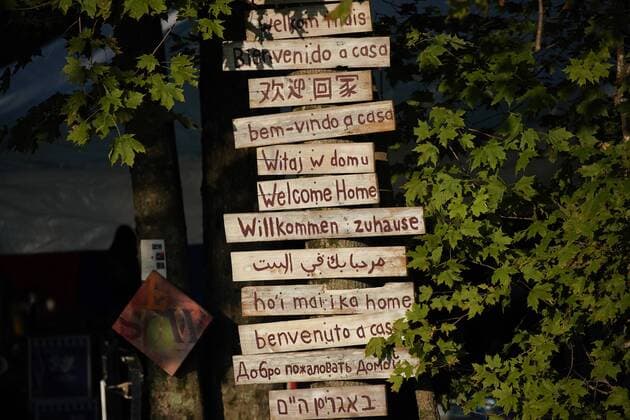 welkom
Bienvenido a casa
欢迎回家
bem-vindo a casa
Witaj w domu
Welcome Home
Willkommen zuhause
مرحبا بك في البيت
ho'i mai i ka home
benvenuto a casa
Добро пожаловать Домой
באגריסן היים